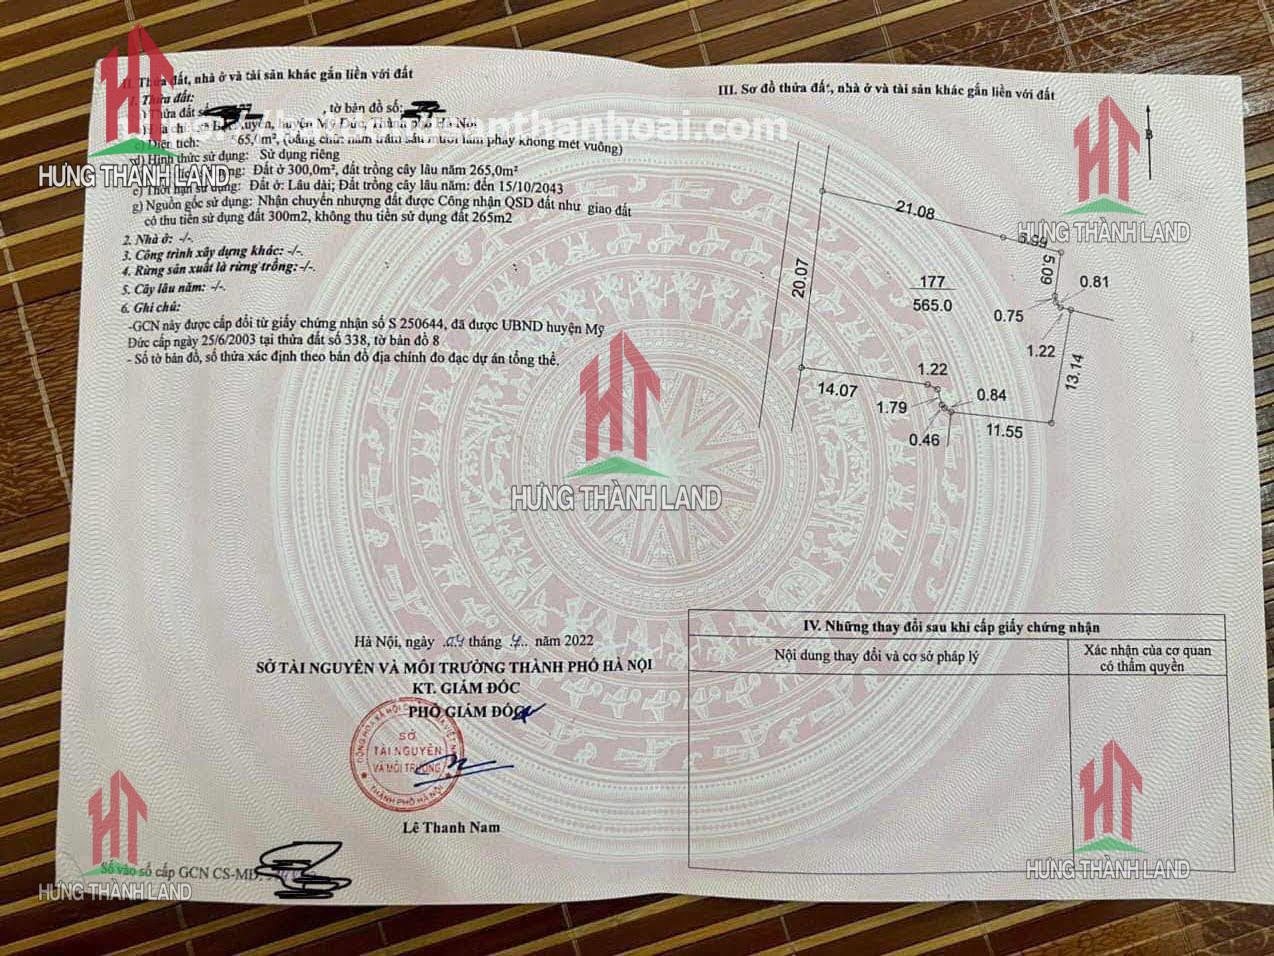 II. Thửa đất, nhà ở và tài sản khác gắn liền với đất
1. Thửa đất:
Thửa đất số , tờ bản đồ số:
huyện Mỹ Đức, Thành phố Hà Nội
c) Diện tích: 565,0m², (bằng chữ: năm trăm sáu mươi lăm phẩy không mét vuông)
d) Hình thức sử dụng: Sử dụng riêng
Đất ở 300,0m², đất trồng cây lâu năm 265,0m²
e) Thời hạn sử dụng: Đất ở: Lâu dài; Đất trồng cây lâu năm: đến 15/10/2043
g) Nguồn gốc sử dụng: Nhận chuyển nhượng đất được Công nhận QSD đất như giao đất
có thu tiền sử dụng đất 300m2, không thu tiền sử dụng đất 265m2
2. Nhà ở: -/-.
3. Công trình xây dựng khác: -/-.
4. Rừng sản xuất là rừng trồng: -/-.
5. Cây lâu năm: -/-.
6. Ghi chú:
-GCN này được cấp đổi từ giấy chứng nhận số S 250644, đã được UBND huyện Mỹ
Đức cấp ngày 25/6/2003 tại thửa đất số 338, tờ bản đồ 8
- Số tờ bản đồ, số thửa xác định theo bản đồ địa chính đo đạc dự án tổng thể.
Hà Nội, ngày 04 tháng 7 năm 2022
SỞ TÀI NGUYÊN VÀ MÔI TRƯỜNG THÀNH PHỐ HÀ NỘI
KT. GIÁM ĐỐC
PHÓ GIÁM ĐỐC
SỞ
TÀI NGUYÊN
VÀ MÔI TRƯỜNG
THÀNH PHỐ HÀ NỘI
Lê Thanh Nam
Số vào sổ cấp GCN CS-MĐ:
III. Sơ đồ thửa đất, nhà ở và tài sản khác gắn liền với đất
B
21.08
5.09
0.81
20.07
177
565.0
0.75
1.22
13.14
14.07
1.22
1.79
0.84
0.46
11.55
IV. Những thay đổi sau khi cấp giấy chứng nhận
Nội dung thay đổi và cơ sở pháp lý
Xác nhận của cơ quan
có thẩm quyền
HƯNG THÀNH LAND
HƯNG THÀNH LAND
HƯNG THÀNH LAND
HƯNG THÀNH LAND
HƯNG THÀNH LAND